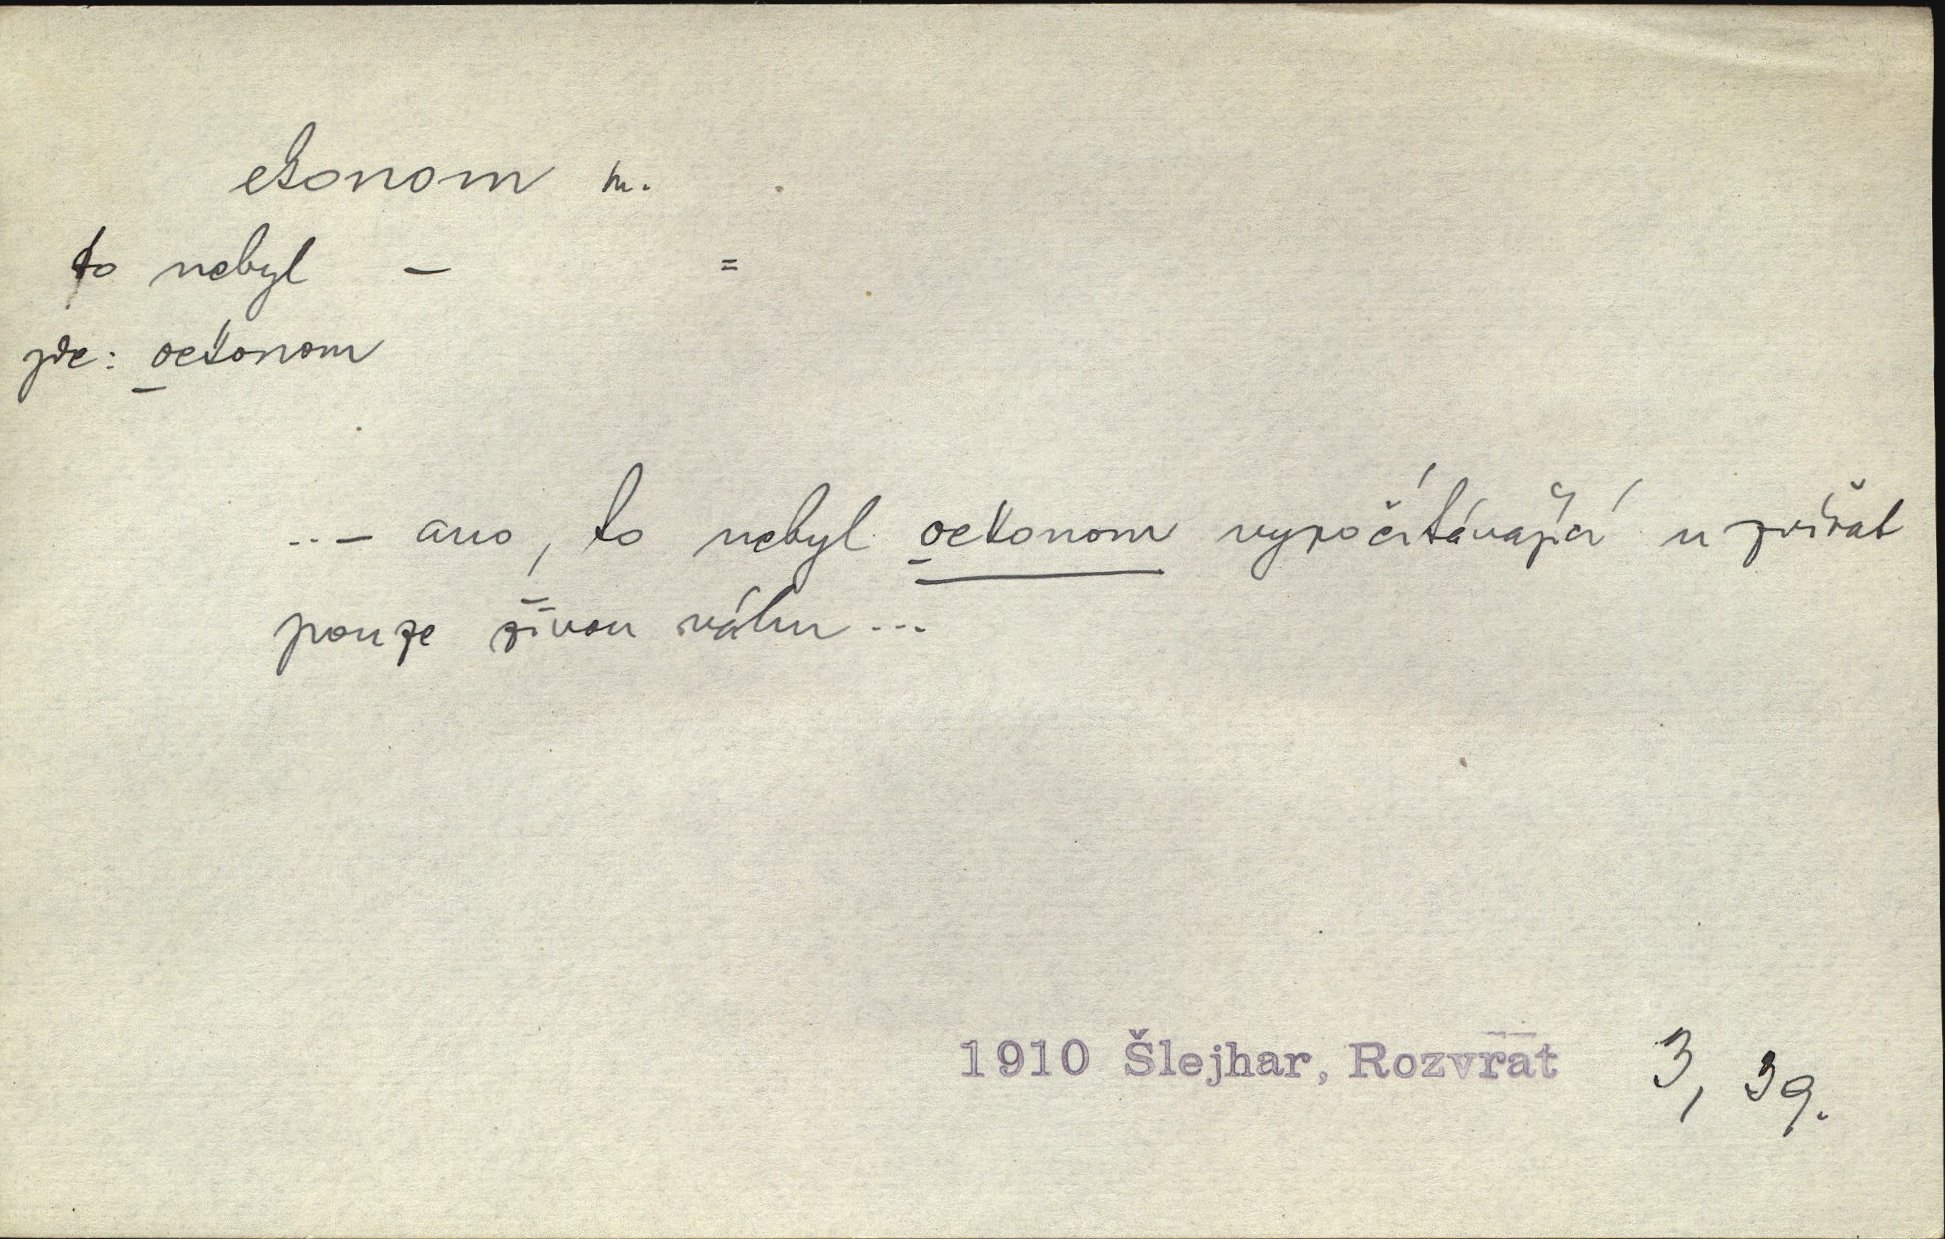 ekonom m.
to nebyl — =
zde: oekonom
..— ano, to nebyl oekonom vypočítávající u zvířat
pouze živou váhu ...
1910 Šlejhar, Rozvrat 3, 39.